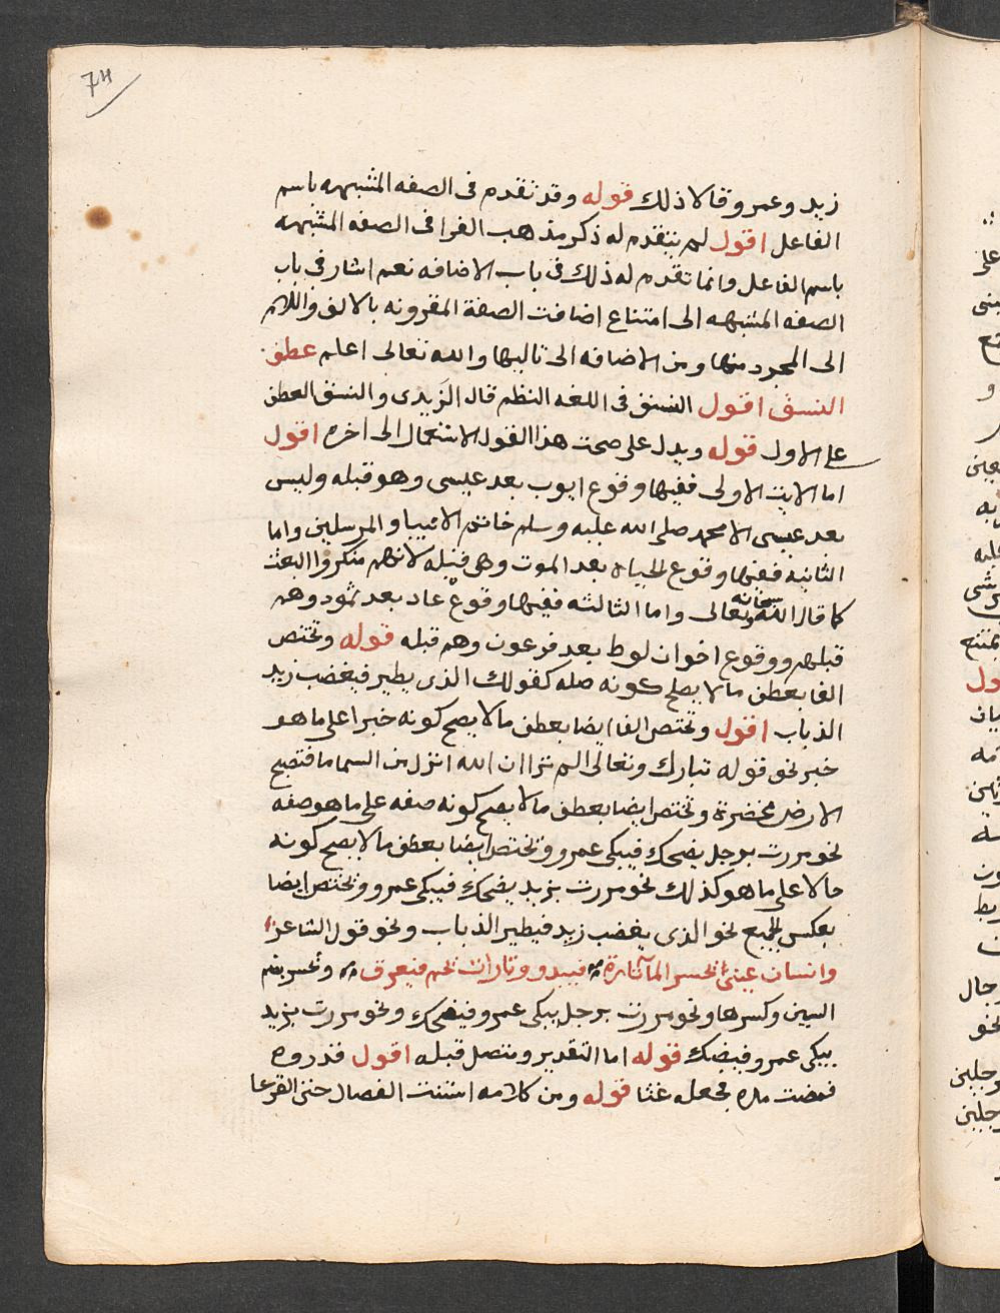 74
زيد وعمرو قالا ذلك قوله وقد تقدم فى الصفه المشبهه باسم
الفاعل اقول لم يتقدم له ذكر مذهب الفرا فى الصفه المشبهه
باسم الفاعل وانما تقدم له ذلك فى باب الاضافه نعم اشار فى باب
الصفه المشبهه الى امتناع اضافت الصفة المقرونه بالالف واللام
الى المجرد منها ومن الاضافه الى تاليها والله تعالى اعلم عطف
النسق اقول النسق فى اللغه النظم قال الزَبيدى والنسق العطف
على الاول قوله ويدل على صحت هذا القول الاستعمال الى اخره اقول
اما الايت الاولى ففيها وقوع ايوب بعد عيسى وهو قبله وليس
بعد عيسى الا محمد صلى الله عليه وسلم خاتم الانبيا والمرسلين واما
الثانيه ففيها وقوع الحياه بعد الموت وهى قبله لانهم منكروا البعث
كما قال الله سبحانه وتعالى واما الثالثه ففيها وقوع عاد بعد ثمود وهم
قبلهم ووقوع اخوان لوط بعد فرعون وهم قبله قوله وتختص
الفا بعطف ما لا يصلح كونه صله كقولك الذى يطير فيغضب زيد
الذباب اقول وتختص الفا ايضا بعطف ما لا يصح كونه خبرا على ما هو
خبر نحو قوله تبارك وتعالى الم تر ان الله انزل من السما ما فتصبح
الارض مخضرة وتختص ايضا بعطف ما لا يصح كونه صفه على ما هو صفه
نحو مررت برجل يضحك فيبكى عمرو وتختص ايضا بعطف ما لا يصح كونه
حالا على ما هو كذلك نحو مررت بزيد يضحك فيبكى عمرو وتختص ايضا
بعكس الجميع نحو الذى يغضب زيد فيطير الذباب ونحو قول الشاعر
وانسان عينى يحسر الما تارة فيبدو وتارات يجم فيغرق ويحسر بضم
السين وكسرها ونحو مررت برجل يبكى عمرو فيضحك ونحو مررت بزيد
يبكى عمرو فيضحك قوله اما التقدير ومتصل قبله اقول قدروه
فمضت مده فجعله غثا قوله ومن كلامه استنت الفصال حتى القرعا